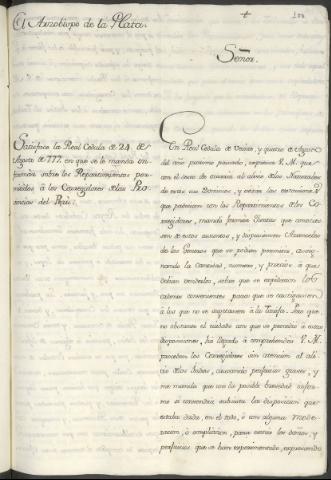 El Arzobispo de la Plata.
Señor.
Satisface la Real Cedula de 24 de
Agosto de 777 en que se le manda in-
forme sobre los Repartimientos per-
mitidos à los Corregidores de las Pro-
vincias del Perù.
En Real Cedula de veinte, y quatro de Agosto
del año proximo pasado, expresa V. M. que
con el deseo de aliviar à los Naturales
de estos sus Dominios, y evitar las extorsiones
que padecian con los Repartimientos de los Co-
rregidores, mandò formàr Juntas que conocie-
sen de estos asuntos, y dispusieron Aranceles
de los Generos que se podian permitir, asig-
nando la cantidad, numero, y precio à que
debian venderlos, sobre que se expidieron las
ordenes convenientes para que se castigasen
à los que no se sugetasen à la Tarifa. Pero que
no obstante el cuidado con que se procediò à estas
disposiciones, ha llegado à comprehender V. M.
proceden los Corregidores sin atencion al ali-
vio de los Indios, causando perjuicios graves, y
me manda que con la posible brevedad infor-
me si convendrà subsista la disposicion que
estaba dada, en el todo, ò con alguna mode-
racion, ò ampliacion, para evitar los daños, y
perjuicios que se han experimentado, exponiendo